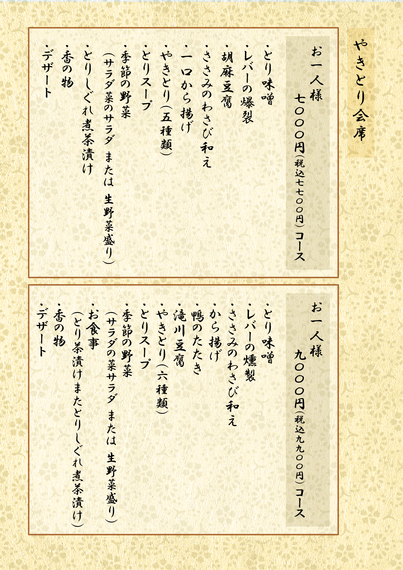 やきとり会席
お一人様
七〇〇〇円(税込七七〇〇円)コース
・とり味噌
・レバーの燻製
・胡麻豆腐
・ささみのわさび和え
・一口から揚げ
・やきとり(五種類)
・とりスープ
・季節の野菜
(サラダ菜のサラダ または 生野菜盛り)
・とりしぐれ煮茶漬け
・香の物
・デザート
お一人様
九〇〇〇円(税込九九〇〇円)コース
・とり味噌
・レバーの燻製
・ささみのわさび和え
・から揚げ
・鴨のたたき
・滝川豆腐
・やきとり(六種類)
・とりスープ
・季節の野菜
(サラダの菜サラダ または 生野菜盛り)
・お食事
(とり茶漬けまたとりしぐれ煮茶漬け)
・香の物
・デザート